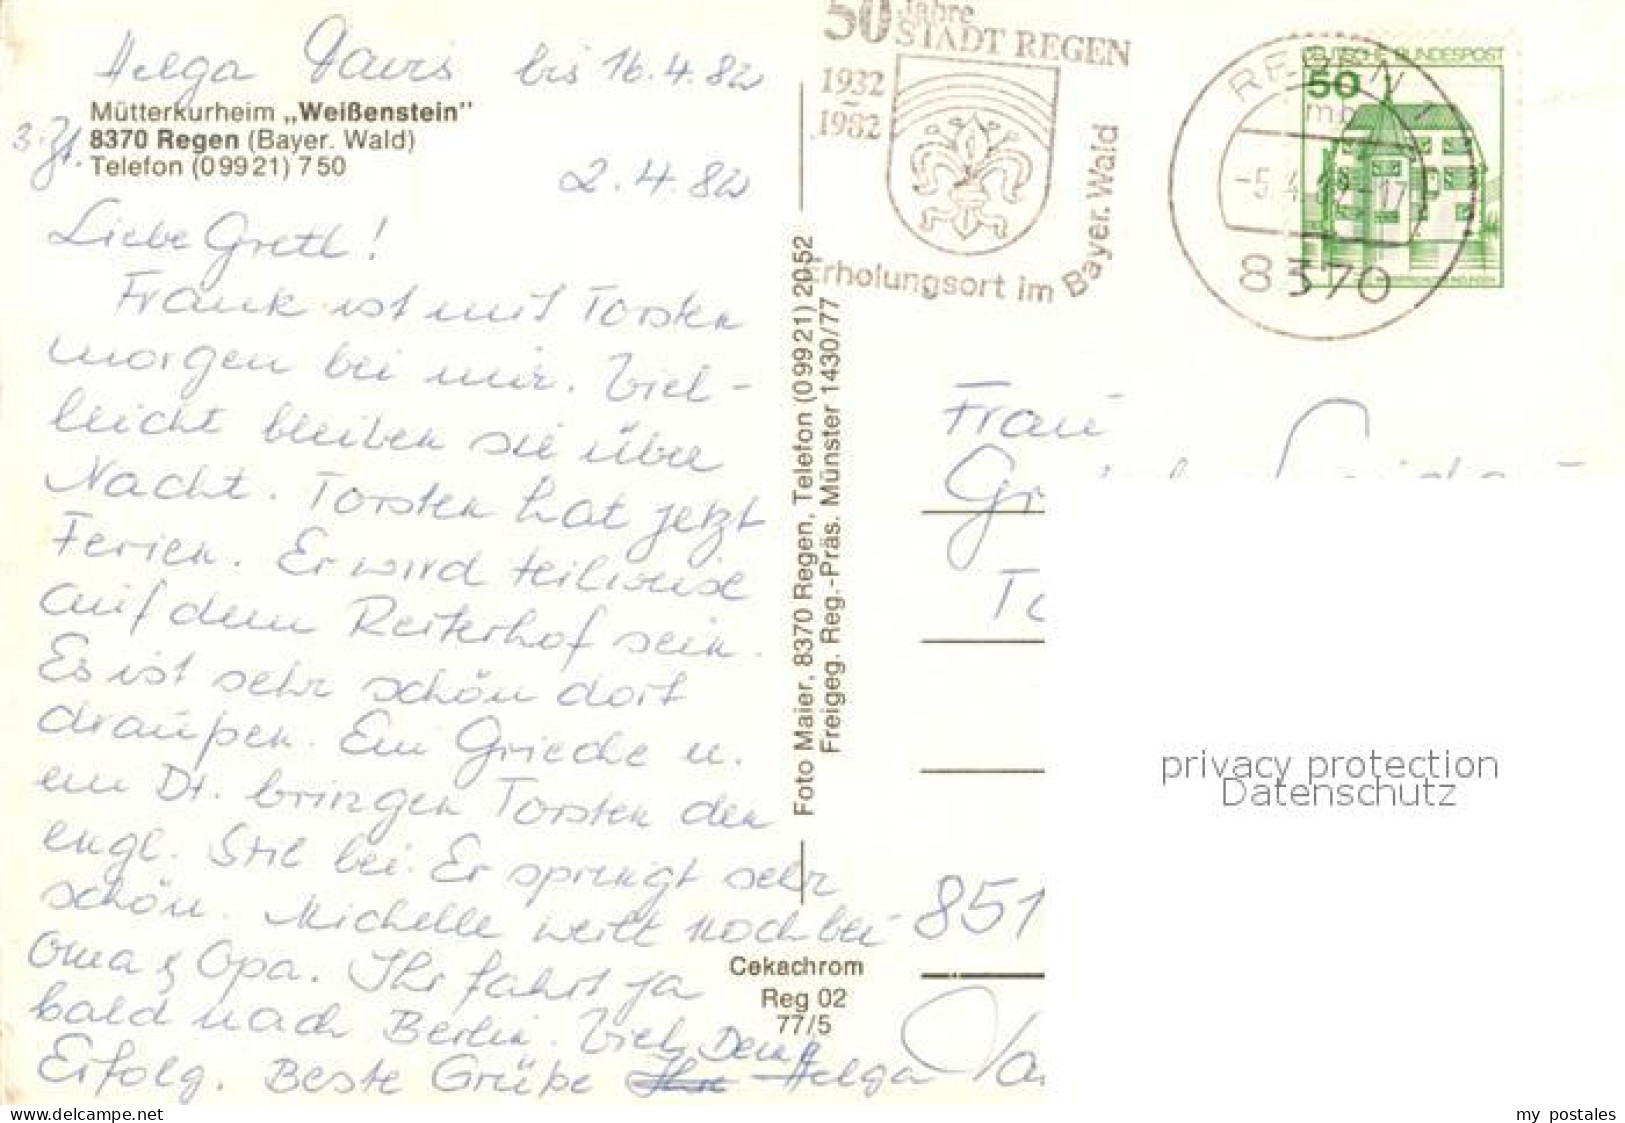 Helga Davis bis 16.4.82
Mütterkurheim „Weißenstein"
8370 Regen (Bayer. Wald)
Telefon (0 99 21) 7 50
3. Zt.
2.4.82
Liebe Gretl!
Frank ist mit Torsten
morgen bei mir. Viel-
leicht bleiben sie über
Nacht. Torsten hat jetzt
Ferien. Er wird teilweise
auf dem Reiterhof sein.
Es ist sehr schön dort
draußen. Ein Grieche u.
ein Dt. bringen Torsten den
engl. Stil bei. Er springt sehr
schön. Michelle weilt noch bei
Oma & Opa. Ihr fahrt ja
bald nach Berlin. Viel
Erfolg. Beste Grüße Deine Helga
Foto Maier, 8370 Regen, Telefon (0 99 21) 20 52
Freigeg. Reg.-Präs. Münster 1430/77
Cekachrom
Reg 02
77/5
50 Jahre
STADT REGEN
1932
-
1982
Erholungsort im Bayer. Wald
DEUTSCHE BUNDESPOST
50
REGEN 1
8370
Frau
851
privacy protection
Datenschutz
my postales
www.delcampe.net